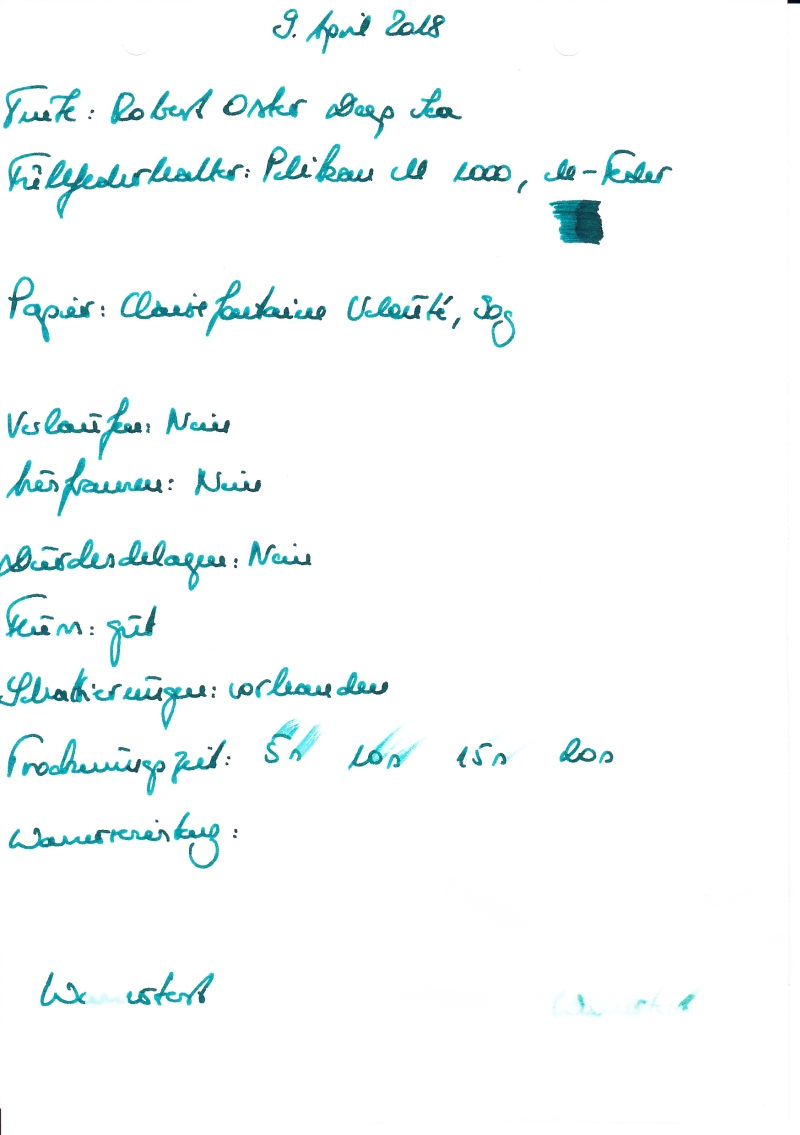 9. April 2018
Tinte: Robert Oster Deep Sea
Füllfederhalter: Pelikan M 1000, M-Feder
Papier: Clairefontaine Velouté, 90g
Verlaufen: Nein
Ausfransen: Nein
Durchschlagen: Nein
Fluss: gut
Schattierungen: vorhanden
Trocknungszeit: 5s 10s 15s 20s
Wasserwirkung:
Wassertest Wassertest